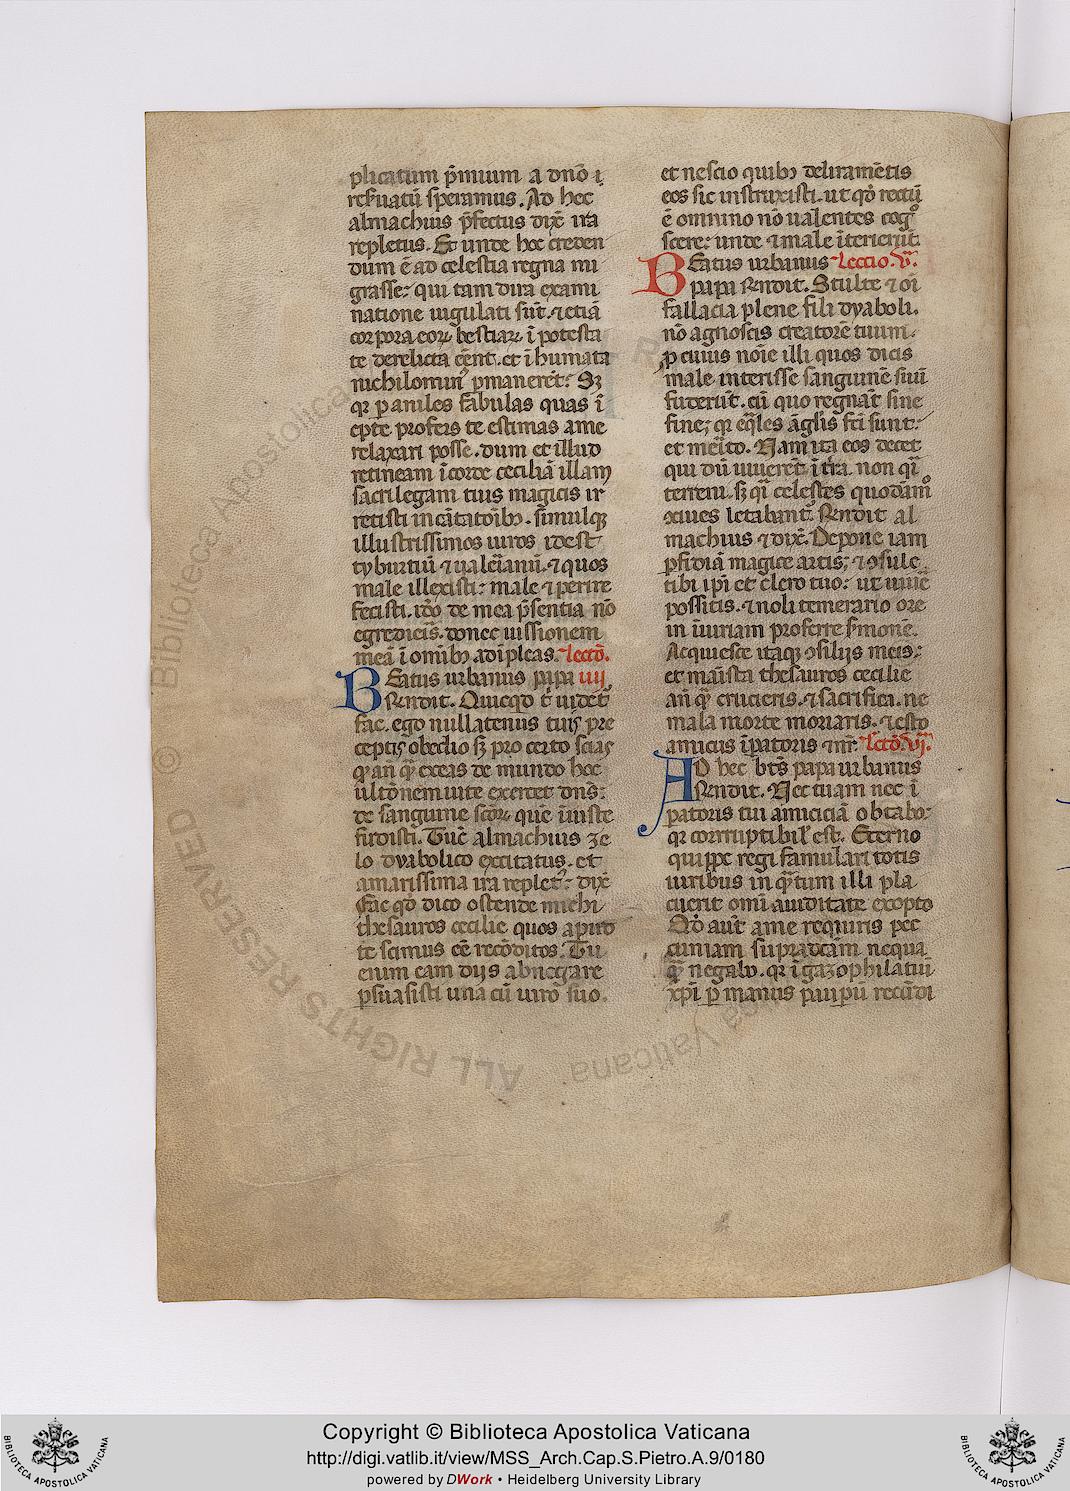 plicatum p̄mium a dn̄o ı̄
reſeruatū ſperamus. Ad hec
almachius p̄fectus dixē ira
repletus. Et unde hoc creden
dum ē ad celeſtia regna mi
graſſe: qui tam dira exami
natione iugulati ſūt. ⁊ etiā
corpora eoꝝ beſtiaꝝ ı̄ poteſta
te derelicta eēnt. et ı̄humata
nichilominꝰ ꝑmanerēt: Sꝫ
qꝛ ꝑ aniles fabulas quas ı̄
epte profers te eſtimas a me
relaxari poſſe. dum et illud
retineam ı̄ corde ceciliā illam
ſacrilegam tuis magicis ir
retiſti incātatōibꝫ. ſimulqꝫ
illuſtriſſimos uiros ideſt
tyburtiū ⁊ ualeı̄anū. ⁊ quos
male illexiſti: male ⁊ perire
feciſti. iđo de mea p̄ſentia nō
egredieı̄s. donec iuſſionem
meā ı̄ omı̄bꝫ adı̄pleas. Lectō.
BEatus urbanus papa iiij
Rn̄dit. Quicqđ t̄ uidetꝰ
fac. ego nullatenus tuis pre
ceptis obedio ſꝫ pro certo ſcias
qꝫ an̄ qͣ exeas de mundo hoc
ultōnem uite exercet dn̄s:
de ſanguine ſcōꝝ quē ı̄iuſte
fudiſti. Tūc almachius ze
lo dyabolico excitatus. et
amariſſima ira repletꝰ: dixē
Fac qđ dico oſtende michi
theſauros cecilie quos apud
te ſcimus eē recōditos. Tu
enim eam dijs abnegare
ꝑſuaſiſti una cū uiro ſuo.
et neſcio quibꝫ deliramētis
eos ſic inſtruxiſti. ut qđ rectū
ē omnino nō ualentes cogͦ
ſcere: unde ⁊ male ı̄terierūt.
BEatus urbanus Lectio. v̄.
papa Rn̄dit. Stulte ⁊ oı̄
fallacia plene fili dyaboli.
nō agnoſcis creatorē tuum.
ꝓ cuius noı̄e illi quos dicis
male interiſſe ſanguinē ſuū
fuderūt. cū quo regnāt ſine
fine; qꝛ eq̄les āgl̄is fc̄i ſunt.
et meı̄to. Nam ita eos decet
qui dū uiuerēt ı̄ tr̄a. non qͣı
terreni. ſꝫ qͣı celeſtes quodāmͦ
ciues letabantꝰ. Rn̄dit al
machius ⁊ dixē. Depone iam
ꝑfidiā magice artis; ⁊ ꝯſule
tibi ip̄i et clero tuo: ut uiuē
poſſitis. ⁊ noli temerario ore
in iı̄uriam proferre ſ̄monē.
Acquieſce itaqꝫ ꝯſilijs meis:
et maı̄ſta theſauros cecilie
an̄ qͣ crucieris. ⁊ ſacrifica. ne
mala morte moriaris. ⁊ eſto
amicus ı̄patoris ⁊ nr̄. Lctō. vj.
AD hec bt̄s papa urbanus
Rn̄dit. Nec tuam nec ı̄
patoris tui amiciciā obtabo:
qꝛ corruptibil̄ eſt. Eterno
quippe regi famulari totis
uiribus in qͣtum illi pla
cuerit omı̄ auiditate exopto
Qđ aut̄ a me requiris pec
cuniam ſupradc̄am nequa
qͣ negabo. qꝛ ı̄ gazophilatiū
xp̄i ꝑ manus paupū recōdi
Copyright © Biblioteca Apostolica Vaticana
http://digi.vatlib.it/view/MSS_Arch.Cap.S.Pietro.A.9/0180
powered by DWork • Heidelberg University Library
BIBLIOTECA APOSTOLICA VATICANA
BIBLIOTECA APOSTOLICA VATICANA